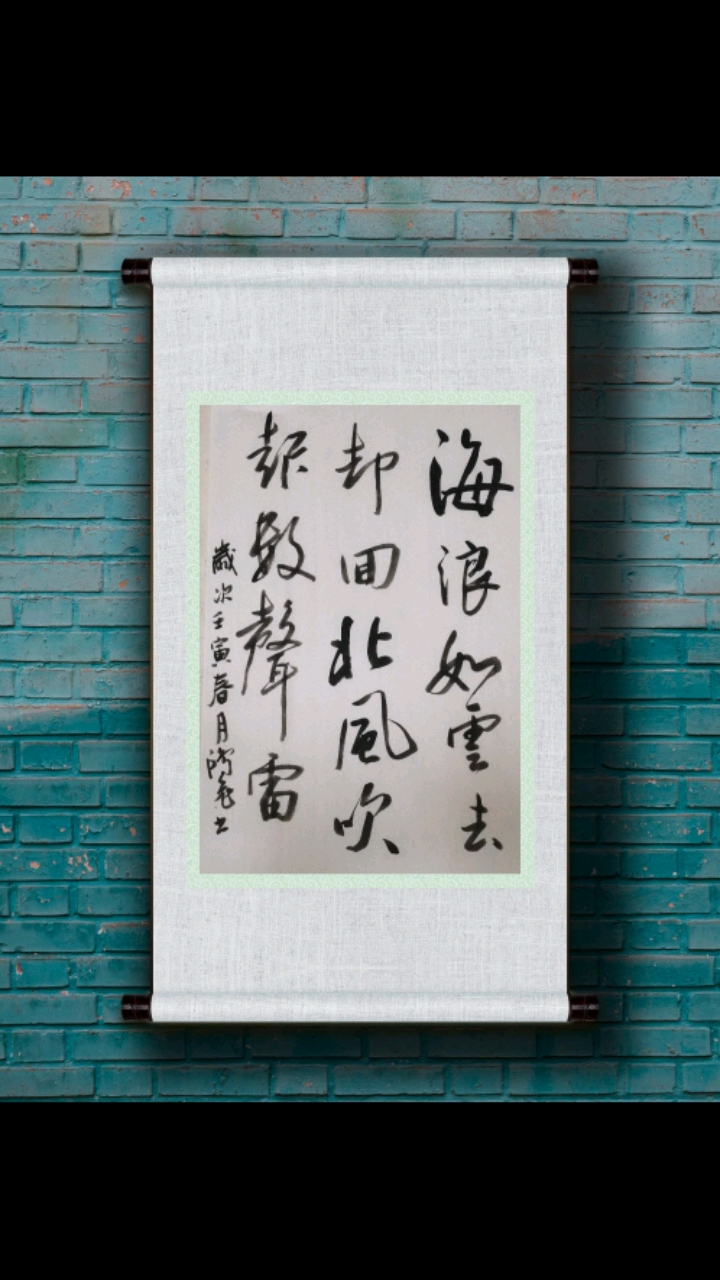 海浪如雲去
却回北風吹
起數聲雷
歲次壬寅春月 书